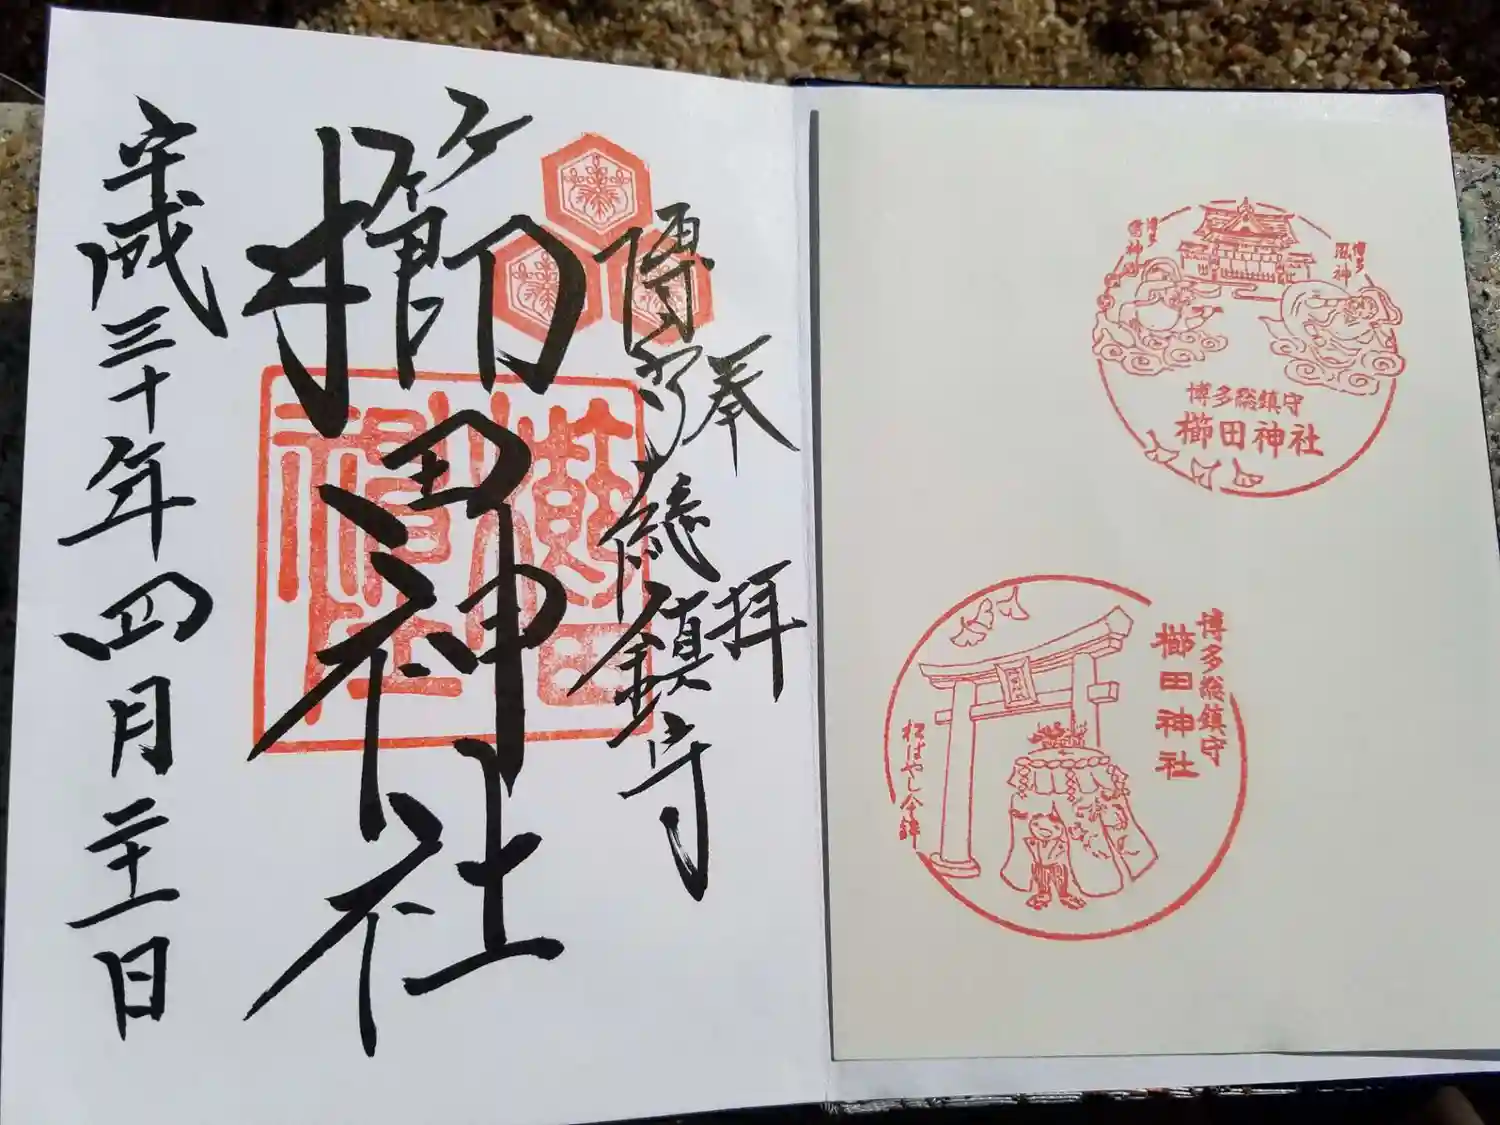 奉拝
博多総鎮守
櫛田神社
櫛田神社
平成三十年四月二十一日
博多
風神
博多
雷神
博多総鎮守
櫛田神社
博多総鎮守
櫛田神社
松ばやし今鉾